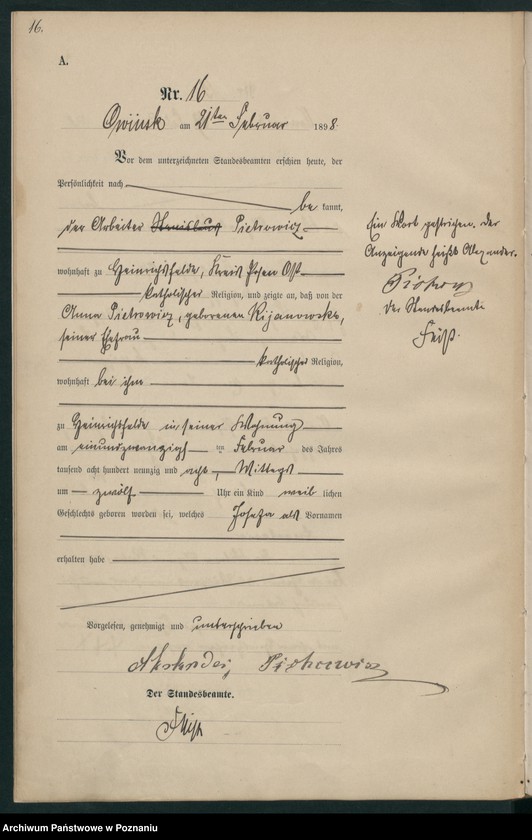 16.
A.
Nr. 16
Owinsk am 21ten Februar 1898.
Vor dem unterzeichneten Standesbeamten erschien heute, der
Persönlichkeit nach
be kannt,
der Arbeiter Pietrowicz
wohnhaft zu Heinrichsfelde, Kreis Posen Ost
katholischer Religion, und zeigte an, daß von der
Anna Pietrowicz, geborenen Kijanowska,
seiner Ehefrau
katholischer Religion,
wohnhaft bei ihm
zu Heinrichsfelde in seiner Wohnung
am einundzwanzigsten Februar des Jahres
tausend acht hundert neunzig und acht, Mittags
um zwölf Uhr ein Kind weib lichen
Geschlechts geboren worden sei, welches Josefa als Vornamen
erhalten habe
Vorgelesen, genehmigt und unterschrieben
Der Standesbeamte.
Ein Wort gestrichen. Der
Anzeigende heißt Alexander.
Der Standesbeamte
Archiwum Państwowe w Poznaniu